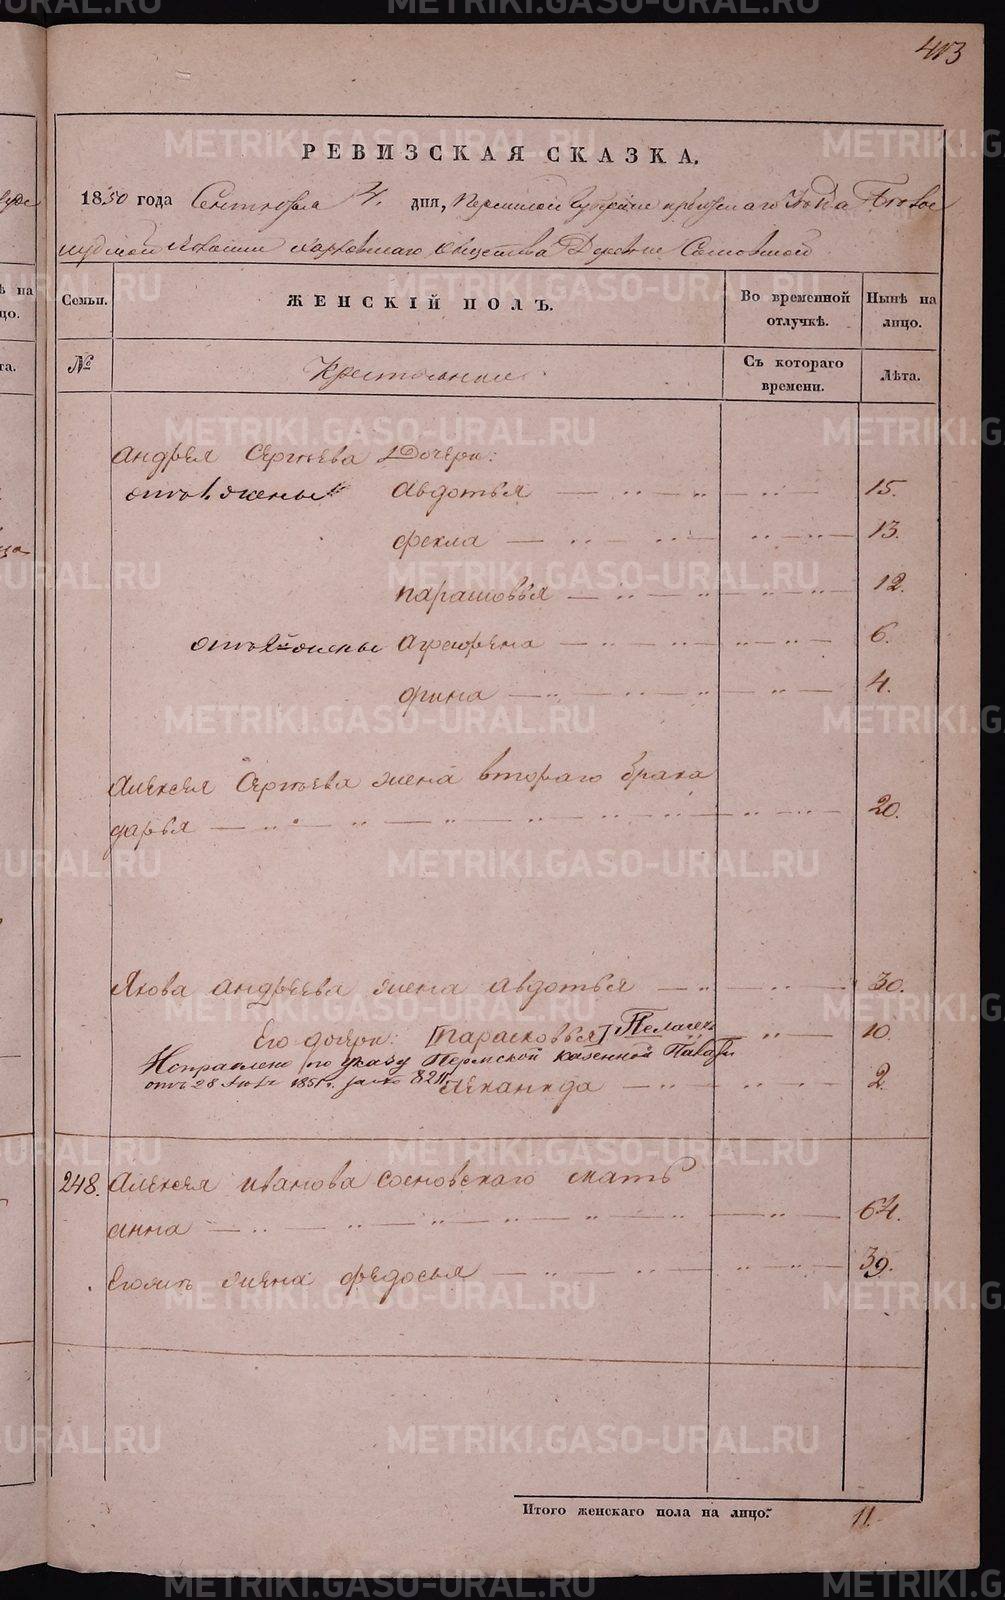 413
РЕВИЗСКАЯ СКАЗКА.
1850 года Сентября дня, Пермской Губернии уезда
волости общества Деревне
Семьи.
ЖЕНСКІЙ ПОЛЪ.
Во временной отлучкѣ.
Нынѣ на лицо.
№
Крестьянские
Съ котораго времени.
Лѣта.
андрея Сергѣева Дочери:
отъ 1 жены авдотья 15.
фекла 13.
парасковья 12.
отъ 2й жены агрофена 6.
орина 4.
Алексея Сергѣева жена втораго брака
дарья 20.
Якова андреева жена авдотья 30.
Его дочери: [Парасковья] Пелагея 10.
Исправлено по указу Пермской казенной Палаты
отъ 28 1851 г. за № 8211
2
248. Алексея иванова сосновскаго мать
анна 64.
жена федосья 39.
Итого женскаго пола на лицо: 11.
METRIKI.GASO-URAL.RU